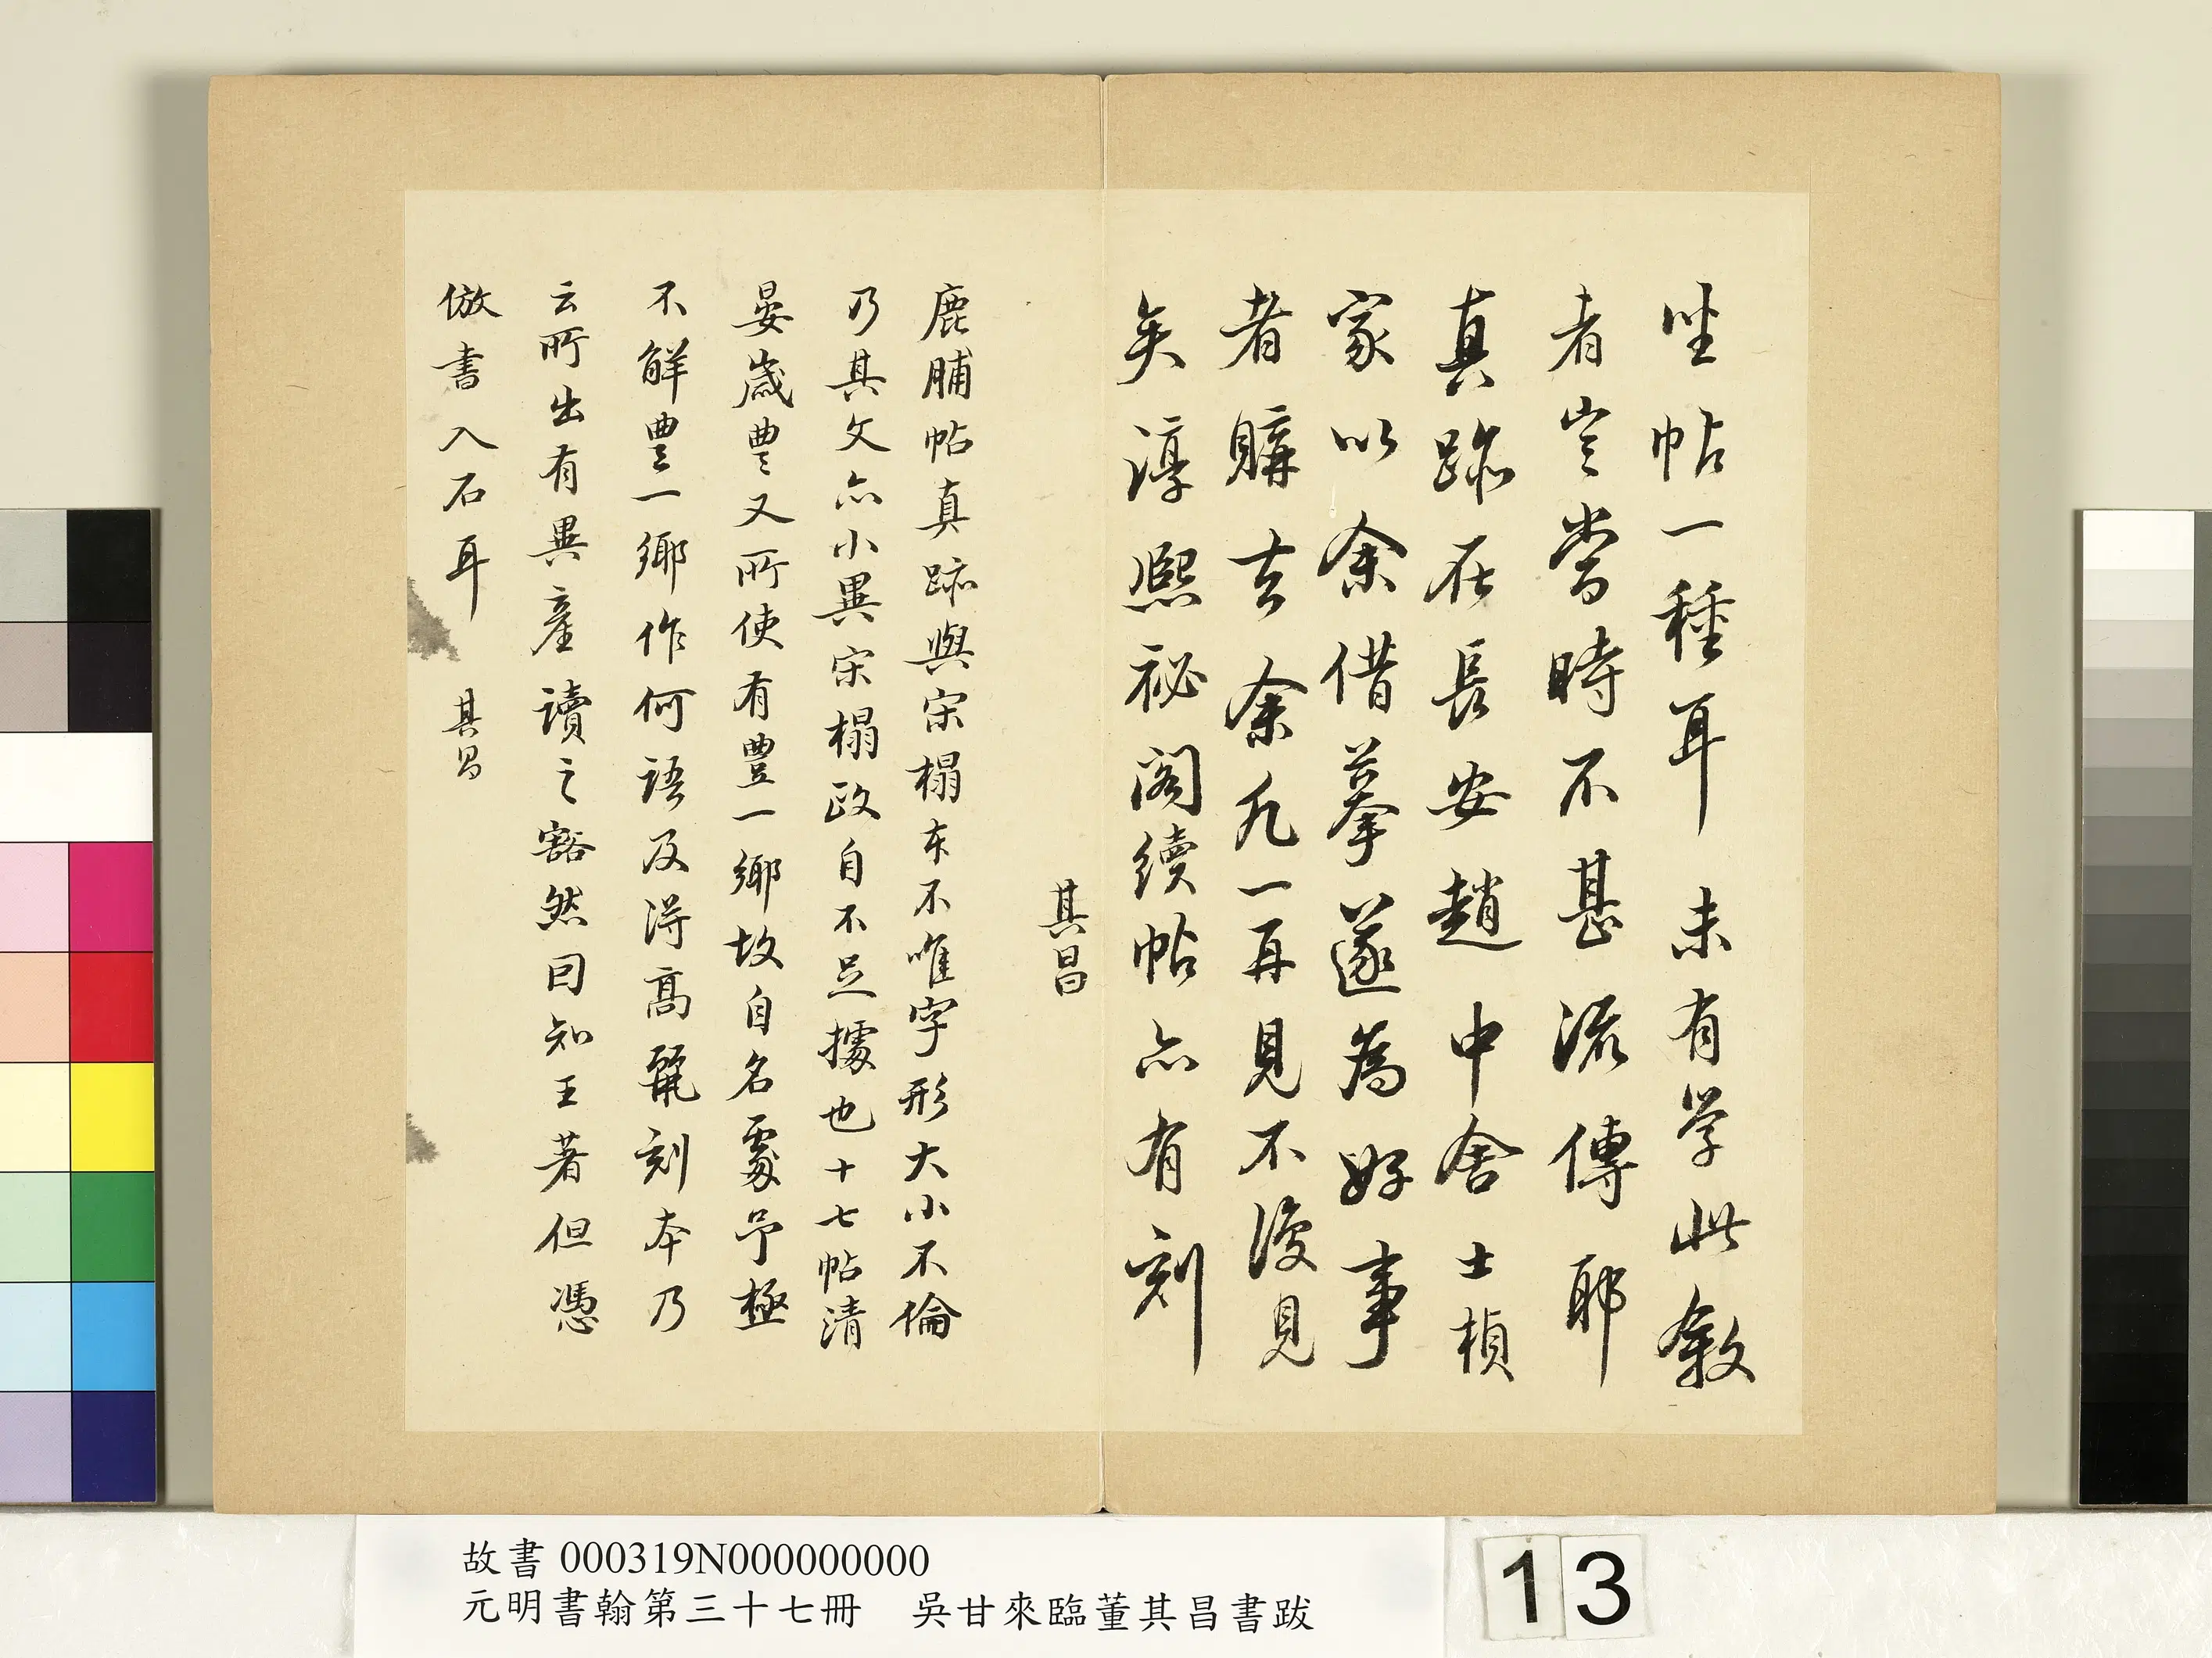 坐帖一種耳未有學此敘
者豈當時不甚流傳耶
真跡在長安趙中舍士楨
家以余借摹遂為好事
者購去余凡一再見不復見
矣淳熙祕閣續帖亦有刻
其昌
鹿脯帖真跡與宋榻本不唯字形大小不倫
乃其文亦小異宋榻政自不足據也十七帖清
晏歲豐又所使有豐一鄉故自名處予極
不解豐一鄉作何語及得高麗刻本乃
云所出有異產讀之豁然曰知王著但憑
倣書入石耳 其昌
故書 000319N000000000
元明書翰第三十七冊 吳甘來臨董其昌書跋
13